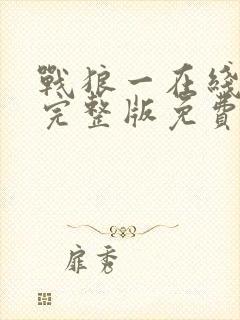 戰狼一在綫
完整版免費
扉秀